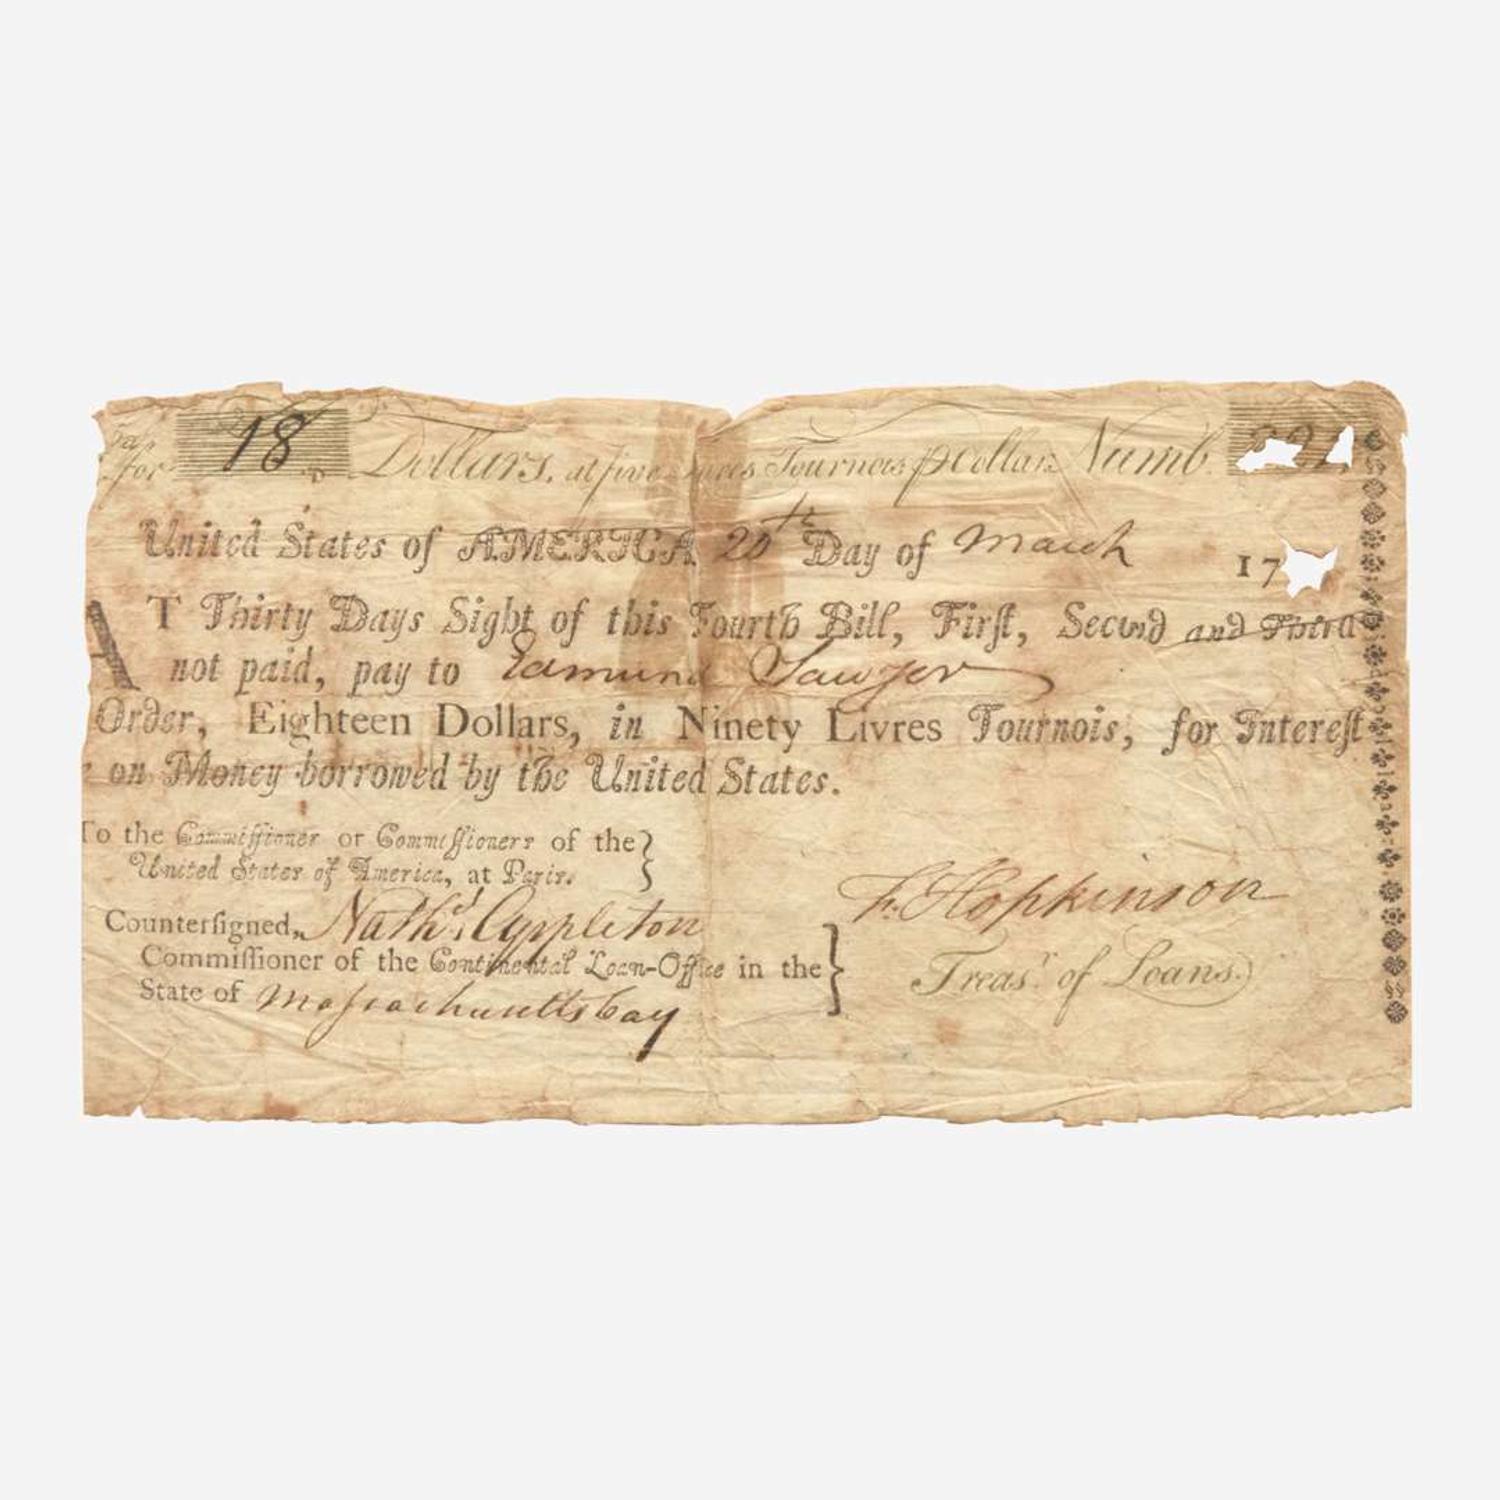 for 18 Dollars, at five Livres Tournois ꝑ Dollar. Numb. 
United States of AMERICA 20th Day of March 17
AT Thirty Days Sight of this Fourth Bill, Firſt, Second and Third
not paid, pay to Edmund Sawyer
Order, Eighteen Dollars, in Ninety Livres Tournois, for Intereſt
on Money borrowed by the United States.
To the Commiſſioner or Commiſſioners of the
United States of America, at Paris.
F. Hopkinson
Treasr. of Loans.
Counterſigned, Nathl. Appleton
Commiſſioner of the Continental Loan-Office in the
State of Maſsachusettsbay